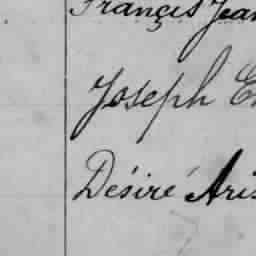 Françis Jean
Joseph
Désiré Aris